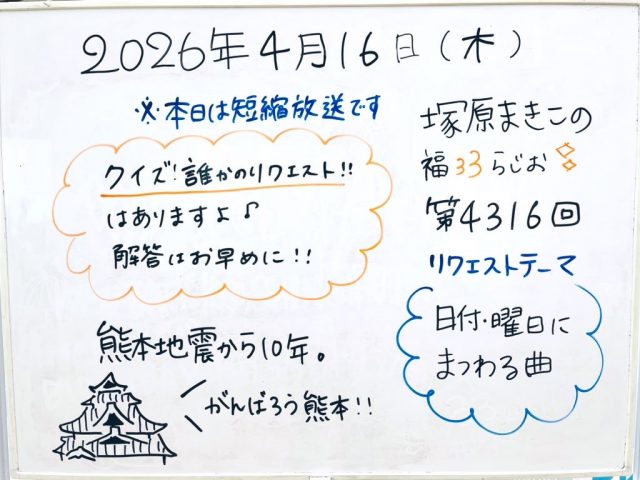 2026年4月16日(木)
※本日は短縮放送です
クイズ!誰かのリクエスト!!
はありますよ♪
解答はお早めに!!
熊本地震から10年。
がんばろう熊本!!
塚原まきこの
福33らじお
第4316回
リクエストテーマ
日付・曜日に
まつわる曲